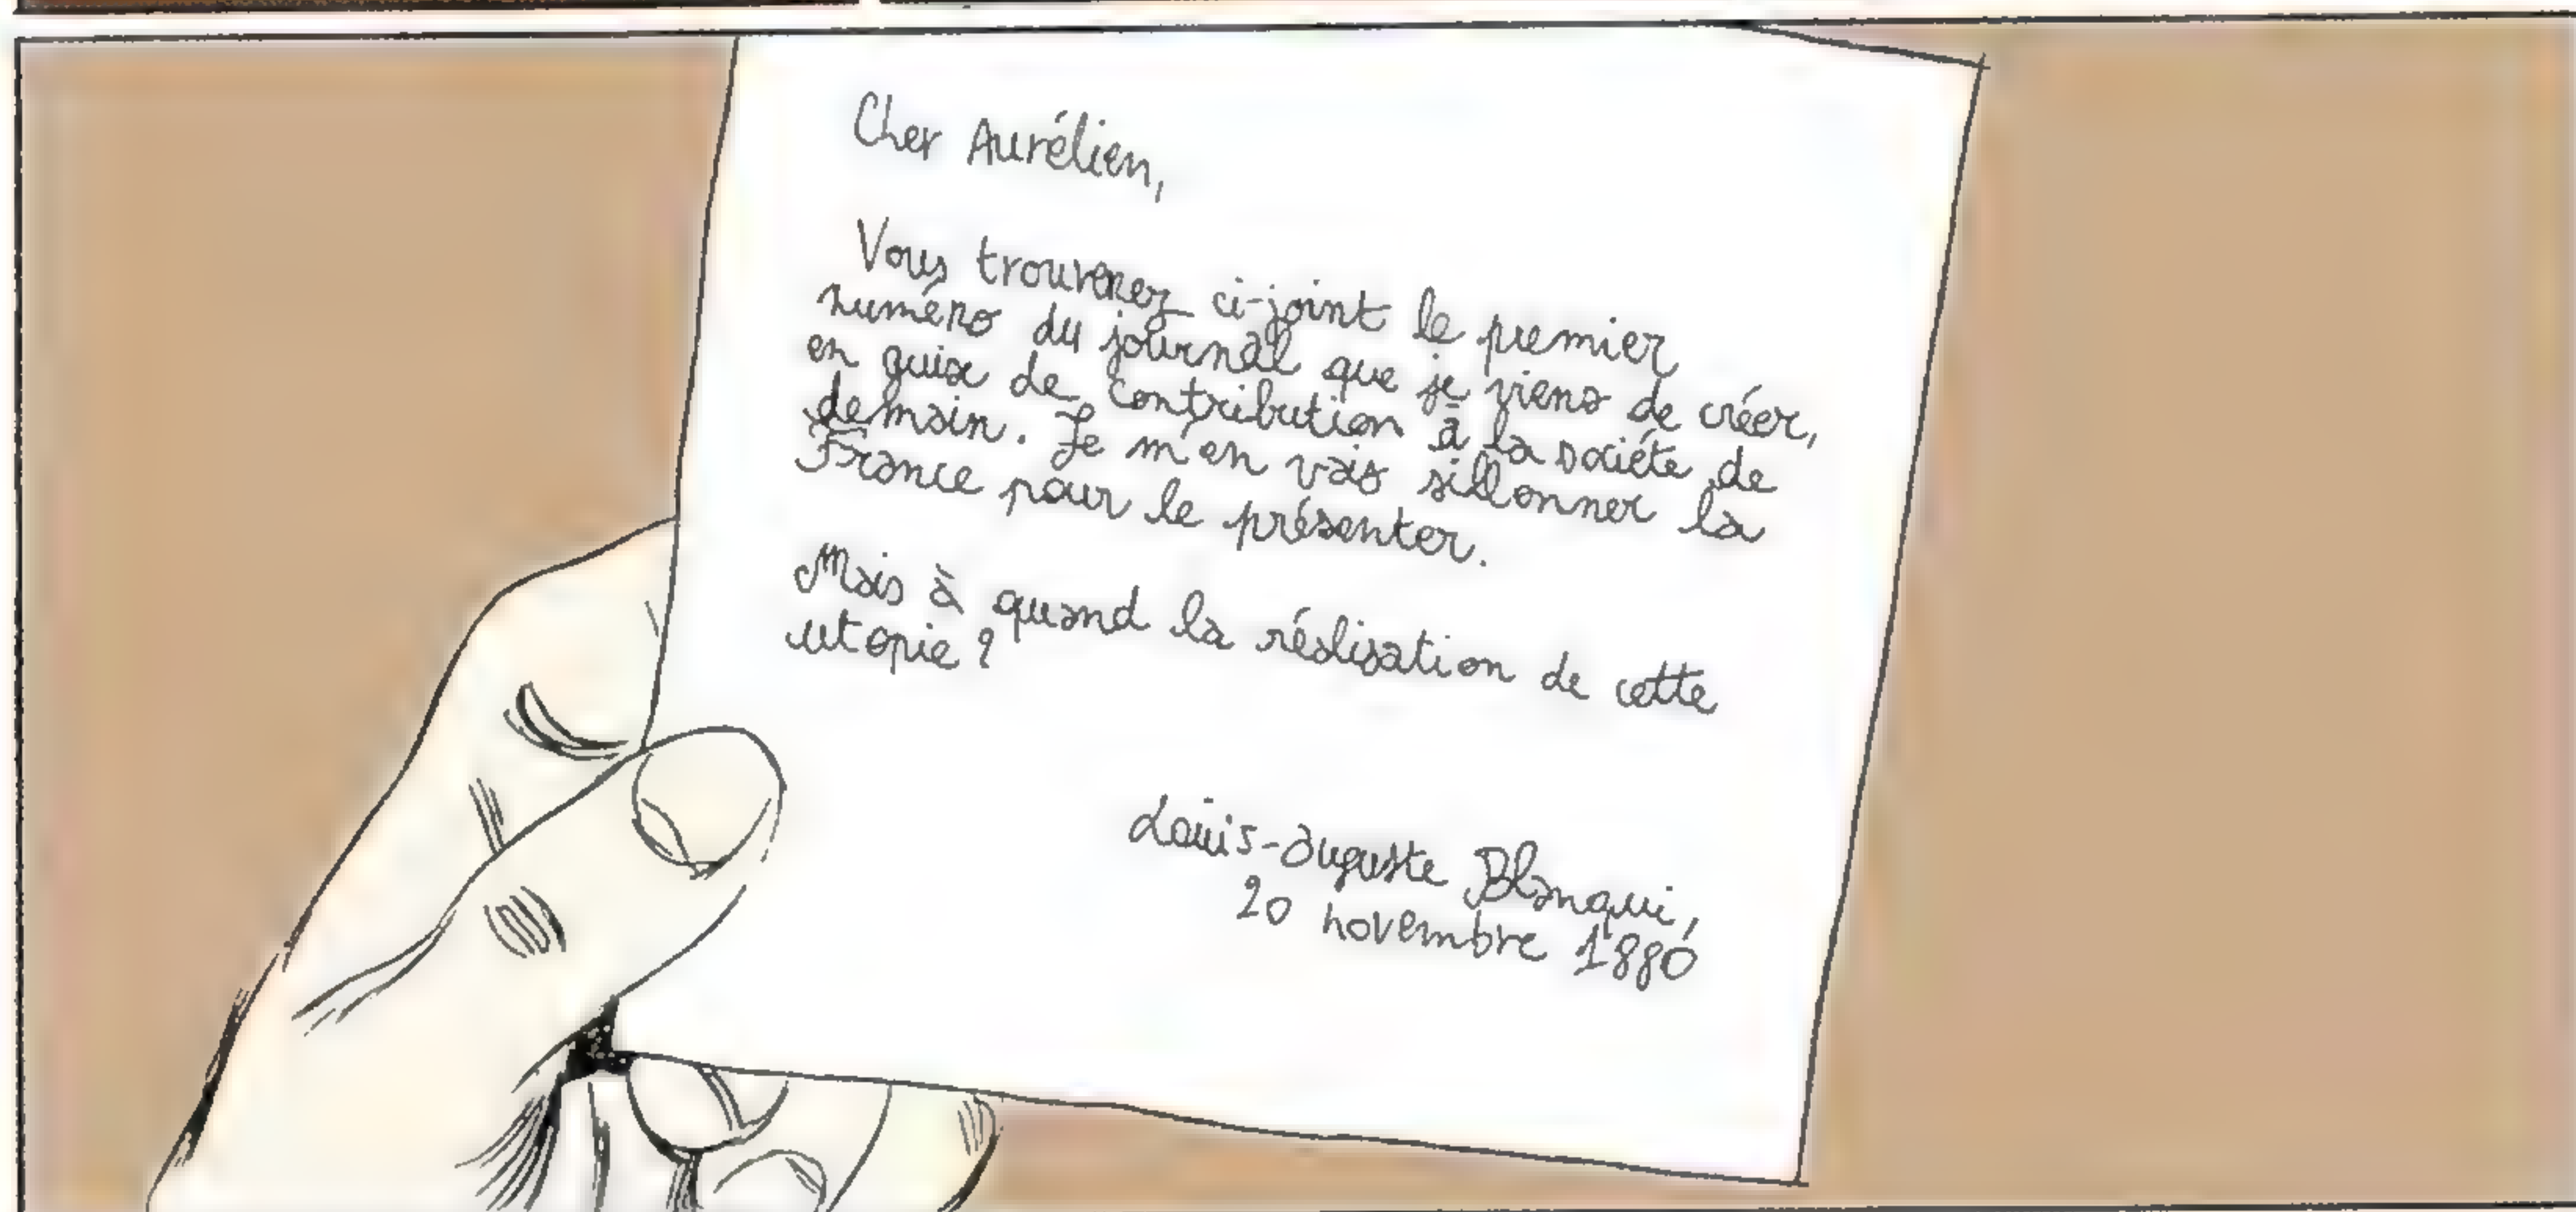 Cher Aurélien,
Vous trouverez ci-joint le premier
numéro du journal que je viens de créer,
en guise de contribution à la société de
demain. Je m'en vais sillonner la
France pour le présenter.
Mais à quand la réalisation de cette
utopie ?
Louis-Auguste Blanqui,
20 novembre 1880